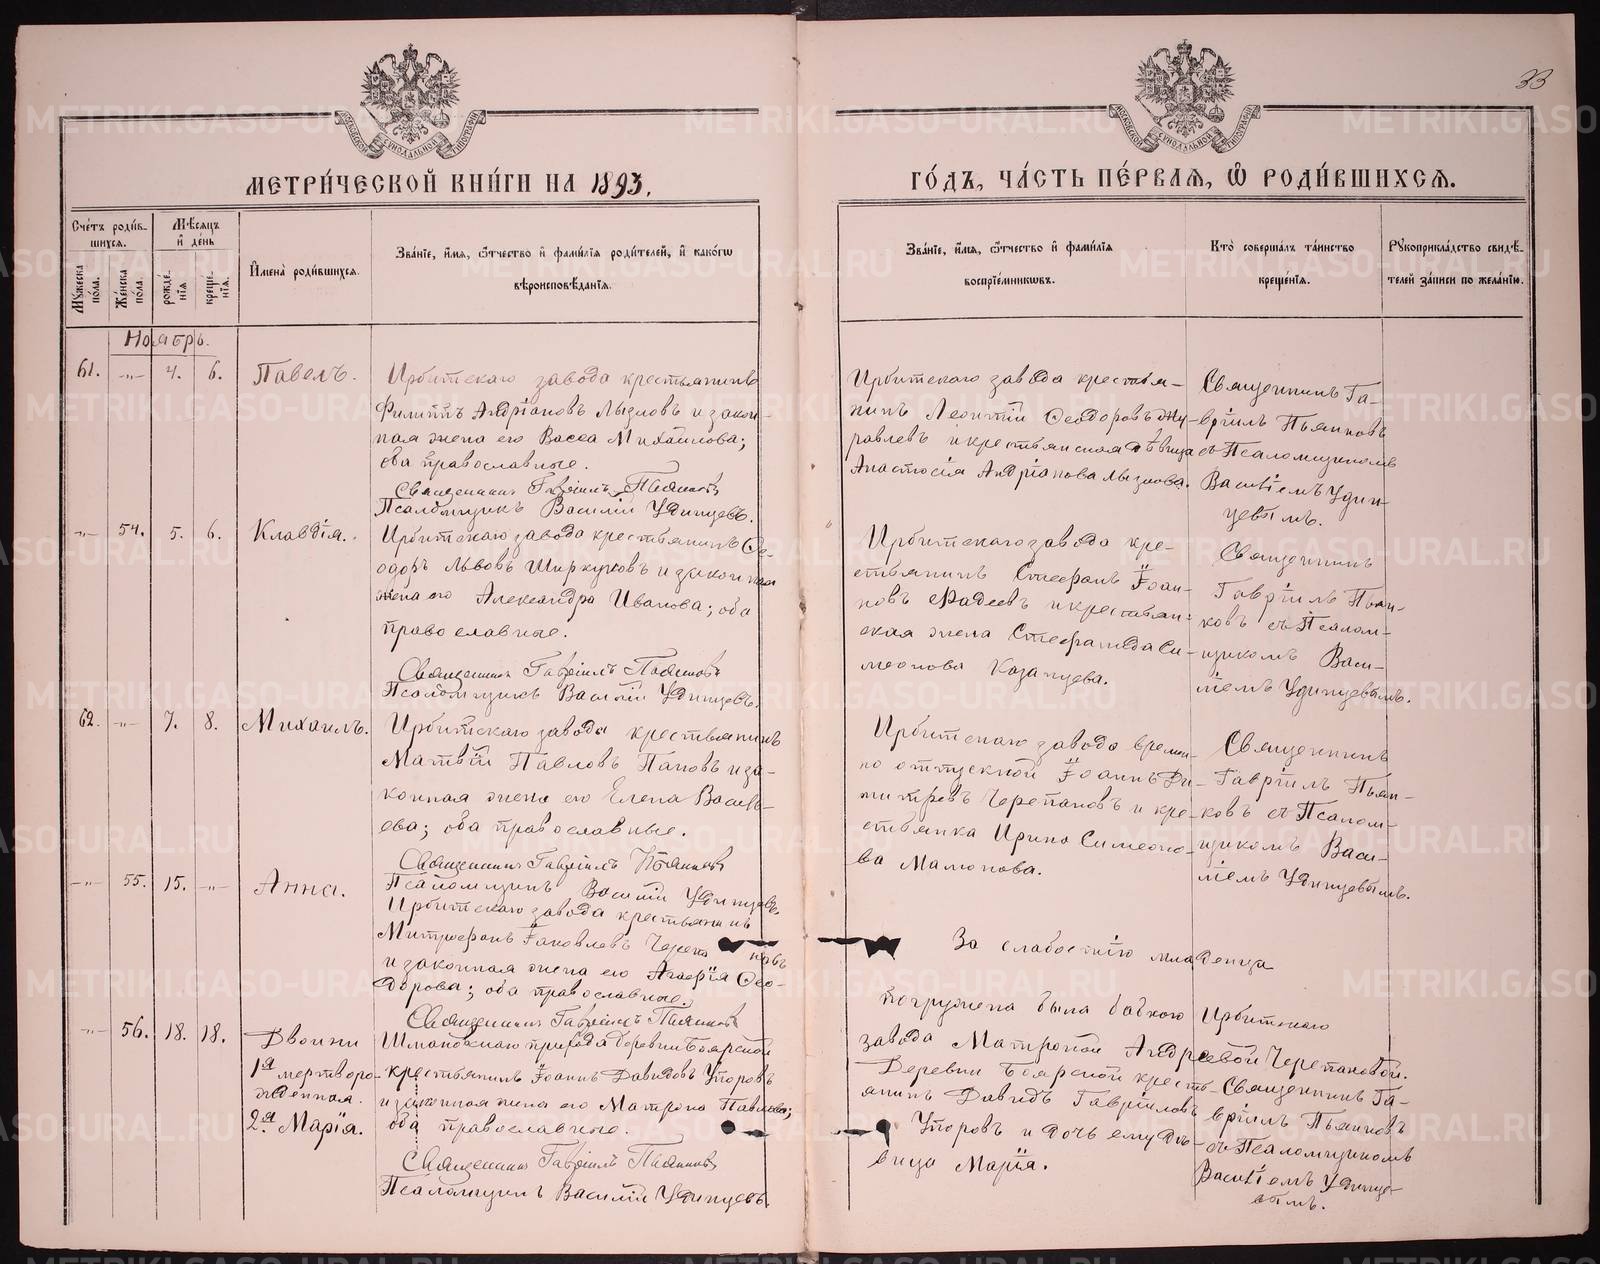 33
МЕТРИ́ЧЕСКОЙ КНИ́ГИ НА 1893.
ГО́ДЪ, ЧА́СТЬ ПЕ́РВАЯ, Ѡ РОДИ́ВШИХСѦ.
Сче́тъ роди́в-
шихсѧ.
Мѣ́сѧцъ
и҆ де́нь
Мꙋ́жеска по́ла.
Же́нска по́ла.
рожде́-нїѧ.
креще́-нїѧ.
И҆мена̀ роди́вшихсѧ.
Зва́нїе, и҆́мѧ, ѻ҆́тчество и҆ фами́лїѧ роди́телей, и҆ како́гѡ
вѣроисповѣ́данїѧ.
Зва́нїе, и҆́мѧ, ѻ҆́тчество и҆ фами́лїѧ
воспрїе́мниковъ.
Кто̀ соверша́лъ та́инство
креще́нїѧ.
Рꙋкоприкла́дство свидѣ́-
телей за́писи по жела́нїю.
Ноябрь.
61. —"— 4. 6. Павелъ.
Ирбитскаго завода крестьянинъ
Филиппъ Андріановъ Лызловъ и закон-
ная жена его Васса Михайлова;
оба православные.
Священникъ Гавріилъ Пьянковъ
Псаломщикъ Василій Удинцевъ.
Ирбитскаго завода крестья-
нинъ Леонтій Ѳеодоровъ Жу-
равлевъ и крестьянская дѣвица
Анастасія Андріанова Лызлова.
Священникъ Га-
вріилъ Пьянковъ
съ Псаломщикомъ
Василіемъ Удин-
цевымъ.
—"— 54. 5. 6. Клавдія.
Ирбитскаго завода крестьянинъ Ѳе-
одоръ Львовъ Ширкуновъ и законная
жена его Александра Иванова; оба
православные.
Священникъ Гавріилъ Пьянковъ
Псаломщикъ Василій Удинцевъ.
Ирбитскаго завода кре-
стьянинъ Стефанъ Іоан-
новъ Фадеевъ и крестьян-
ская жена Стефанида Си-
меонова Казанцева.
Священникъ
Гавріилъ Пьян-
ковъ съ Псалом-
щикомъ Васи-
ліемъ Удинцевымъ.
62. —"— 7. 8. Михаилъ.
Ирбитскаго завода крестьянинъ
Матвѣй Павловъ Пановъ и за-
конная жена его Елена Василь-
ева; оба православные.
Священникъ Гавріилъ Пьянковъ
Псаломщикъ Василій Удинцевъ.
Ирбитскаго завода времен-
но отпускной Іоаннъ Ди-
митріевъ Черепановъ и кре-
стьянка Ирина Симеоно-
ва Малюкова.
Священникъ
Гавріилъ Пьян-
ковъ съ Псалом-
щикомъ Васи-
ліемъ Удинцевымъ.
—"— 55. 15. —"— Анна.
Ирбитскаго завода крестьянинъ
Митрофанъ Іаковлевъ Черепановъ
и законная жена его Агафія Ѳео-
дорова; оба православные.
Священникъ Гавріилъ Пьянковъ
За слабостію младенца
погружена была бабкою Ирбитскаго
завода Матроной Андреевой Черепановой.
—"— 56. 18. 18. Двойни
1я мертворо-
жденная.
2я Марія.
Шмаковскаго прихода деревни Боярской
крестьянинъ Іоаннъ Давидовъ Упоровъ
и законная жена его Матрона Павлова;
оба православные.
Священникъ Гавріилъ Пьянковъ
Псаломщикъ Василій Удинцевъ.
Деревни Боярской кресть-
янинъ Давидъ Гавріиловъ
Упоровъ и дочь ему дѣ-
вица Марія.
Священникъ Га-
вріилъ Пьянковъ
съ Псаломщикомъ
Василіемъ Удинце-
вымъ.
METRIKI.GASO-URAL.RU